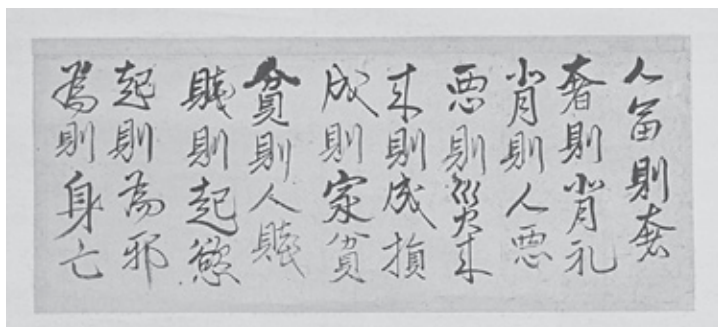 人冨則奢
奢則背礼
背則人悪
悪則災来
来則成損
成則家貧
貧則人賤
賤則起慾
起則為邪
為則身亡